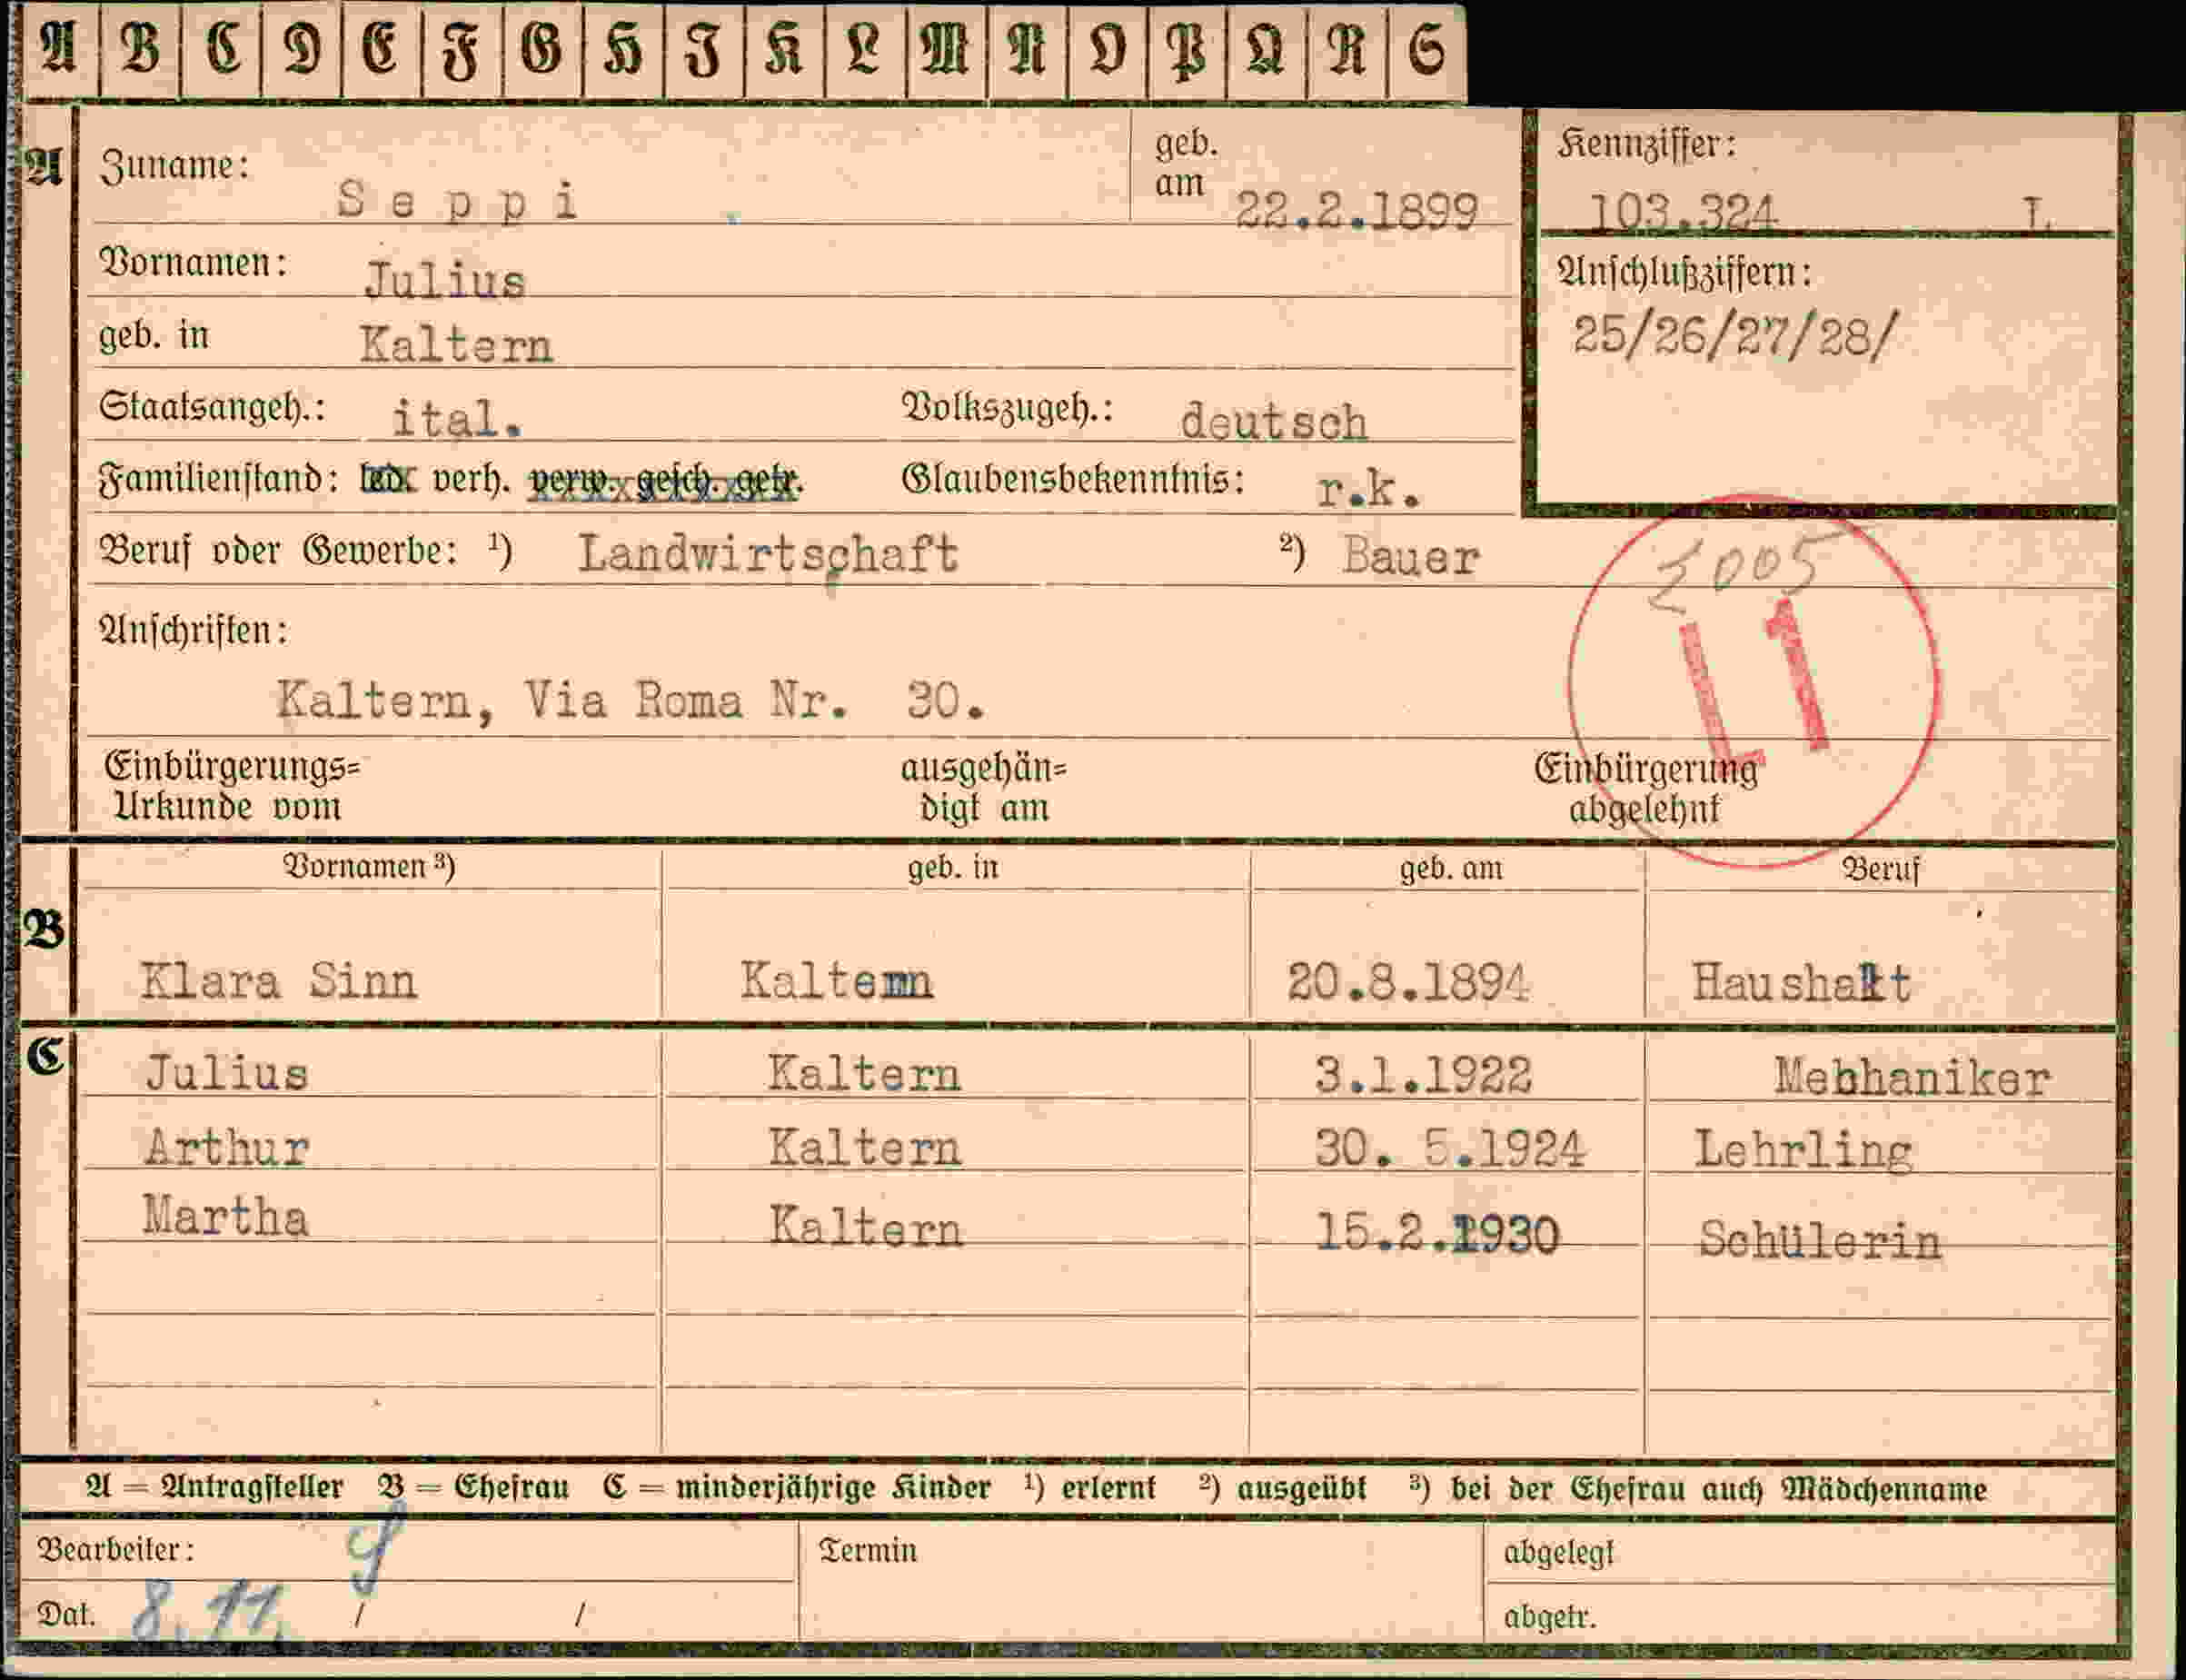 A B C D E F G H I K L M N O P Q R S
A Zuname: Seppi geb. am 22.2.1899
Kennziffer: 103.324 I.
Vornamen: Julius
Anschlußziffern: 25/26/27/28/
geb. in Kaltern
Staatsangeh.: ital. Volkszugeh.: deutsch
Familienstand: verh. verw. gesch. getr. Glaubensbekenntnis: r.k.
Beruf oder Gewerbe: ¹) Landwirtschaft ²) Bauer
Anschriften:
L1
Kaltern, Via Roma Nr. 30.
Einbürgerungs= ausgehän= Einbürgerung
Urkunde vom digt am abgelehnt
Vornamen ³) geb. in geb. am Beruf
B
Klara Sinn Kaltern 20.8.1894 Haushalt
C
Julius Kaltern 3.1.1922 Mehhaniker
Arthur Kaltern 30. 5.1924 Lehrling
Martha Kaltern 15.2.1930 Schülerin
A = Antragsteller B = Ehefrau C = minderjährige Kinder ¹) erlernt ²) ausgeübt ³) bei der Ehefrau auch Mädchenname
Bearbeiter: Termin abgelegt
Dat. 8. 11. / / abgetr.